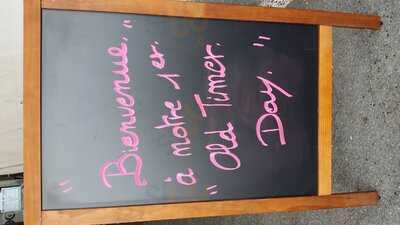 "Bienvenue."
à notre 1er.
"Old Timer.
Day."